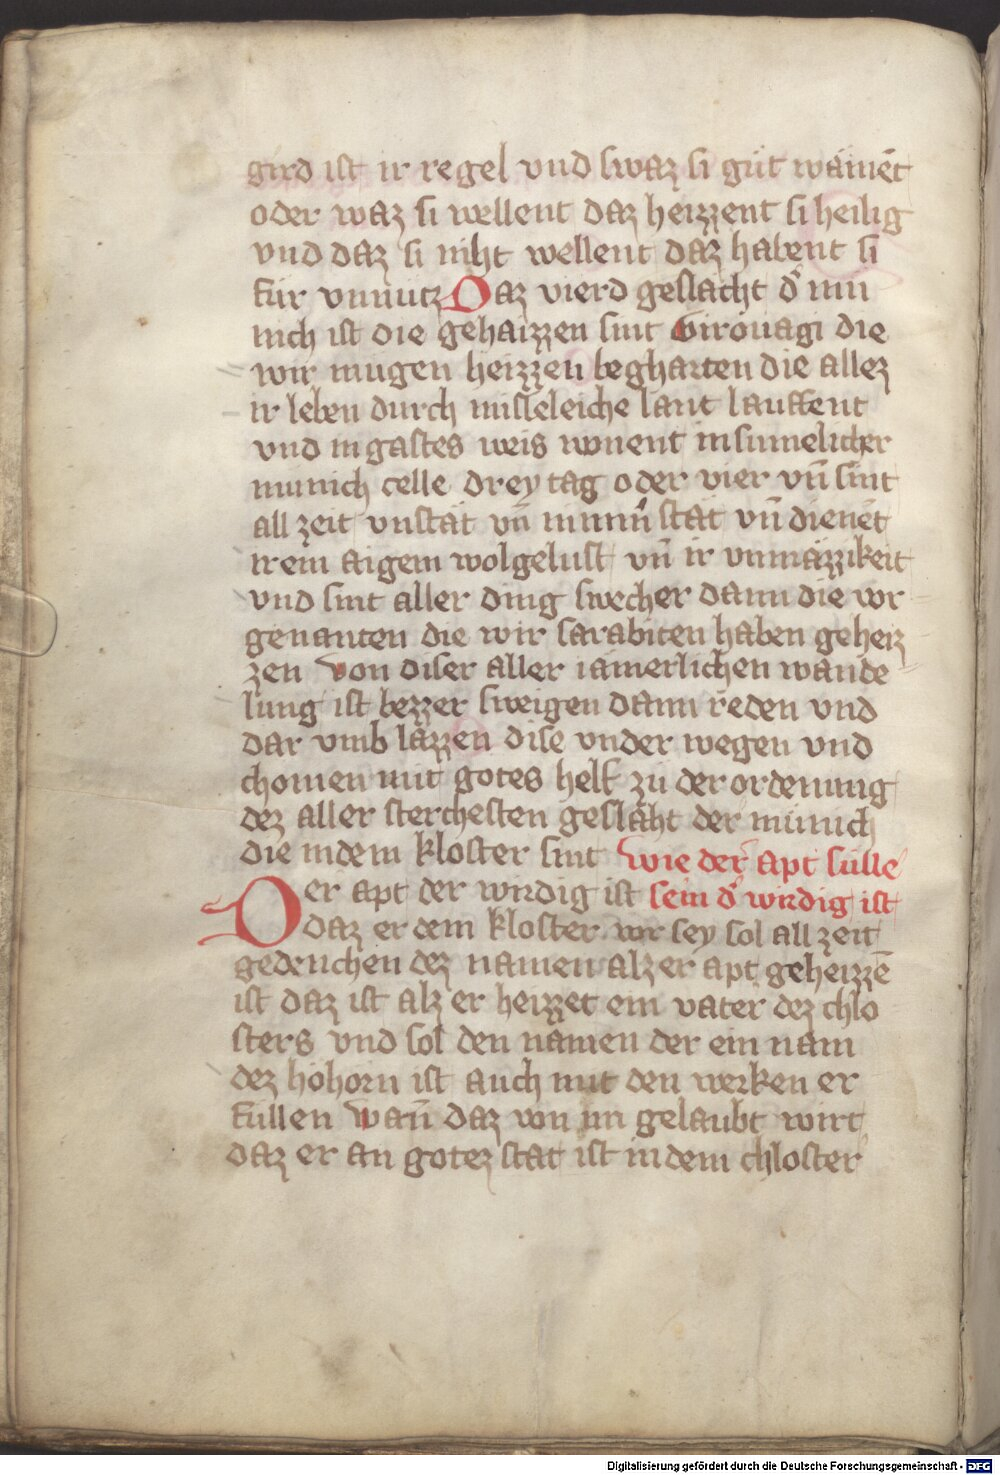 gird ist ir regel vnd swaz si gůt wäniēt
oder waz si wellent daz heizzent si heilig
vnd daz si niht wellent daz habent si
für vnnütz Daz vierd geslächt d̉ mü
nich ist die gehaizzen sint Girouagi die
wir mugen heizzen begharten die allez
ir leben durch misleleiche lant lauffent
vnd in gastes weis wonent in sumelicher
munich celle drey tag oder vier vn̄ sint
all zeit vnstät vn̄ nimm̉ stät vn̄ dienēt
irem aigem wolgelust vn̄ ir vnmäzzikeit
vnd sint aller ding swecher dann die vor
genanten die wir sarabiten haben geheiz
zen Von diser aller iämerlichen wande
lung ist bezzer sweigen dann reden vnd
dar vmb lazzen dise vnder wegen vnd
chomen mit gotes helf zu der ordenung
dez aller sterchesten gesläht der münich
die in dem kloster sint Wie der apt sülle
Der apt der wirdig ist sein d̉ wirdig ist
daz er dem kloster vor sey sol all zeit
gedenchen dez namen alz er apt geheizzē
ist daz ist alz er heizzet ein vater dez chlo
sters vnd sol den namen der ein nam
dez höhorn ist auch mit den werken er
füllen Wan̄ daz von im gelaubt wirt
daz er an gotez stat ist in dem chloster
Digitalisierung gefördert durch die Deutsche Forschungsgemeinschaft - DFG